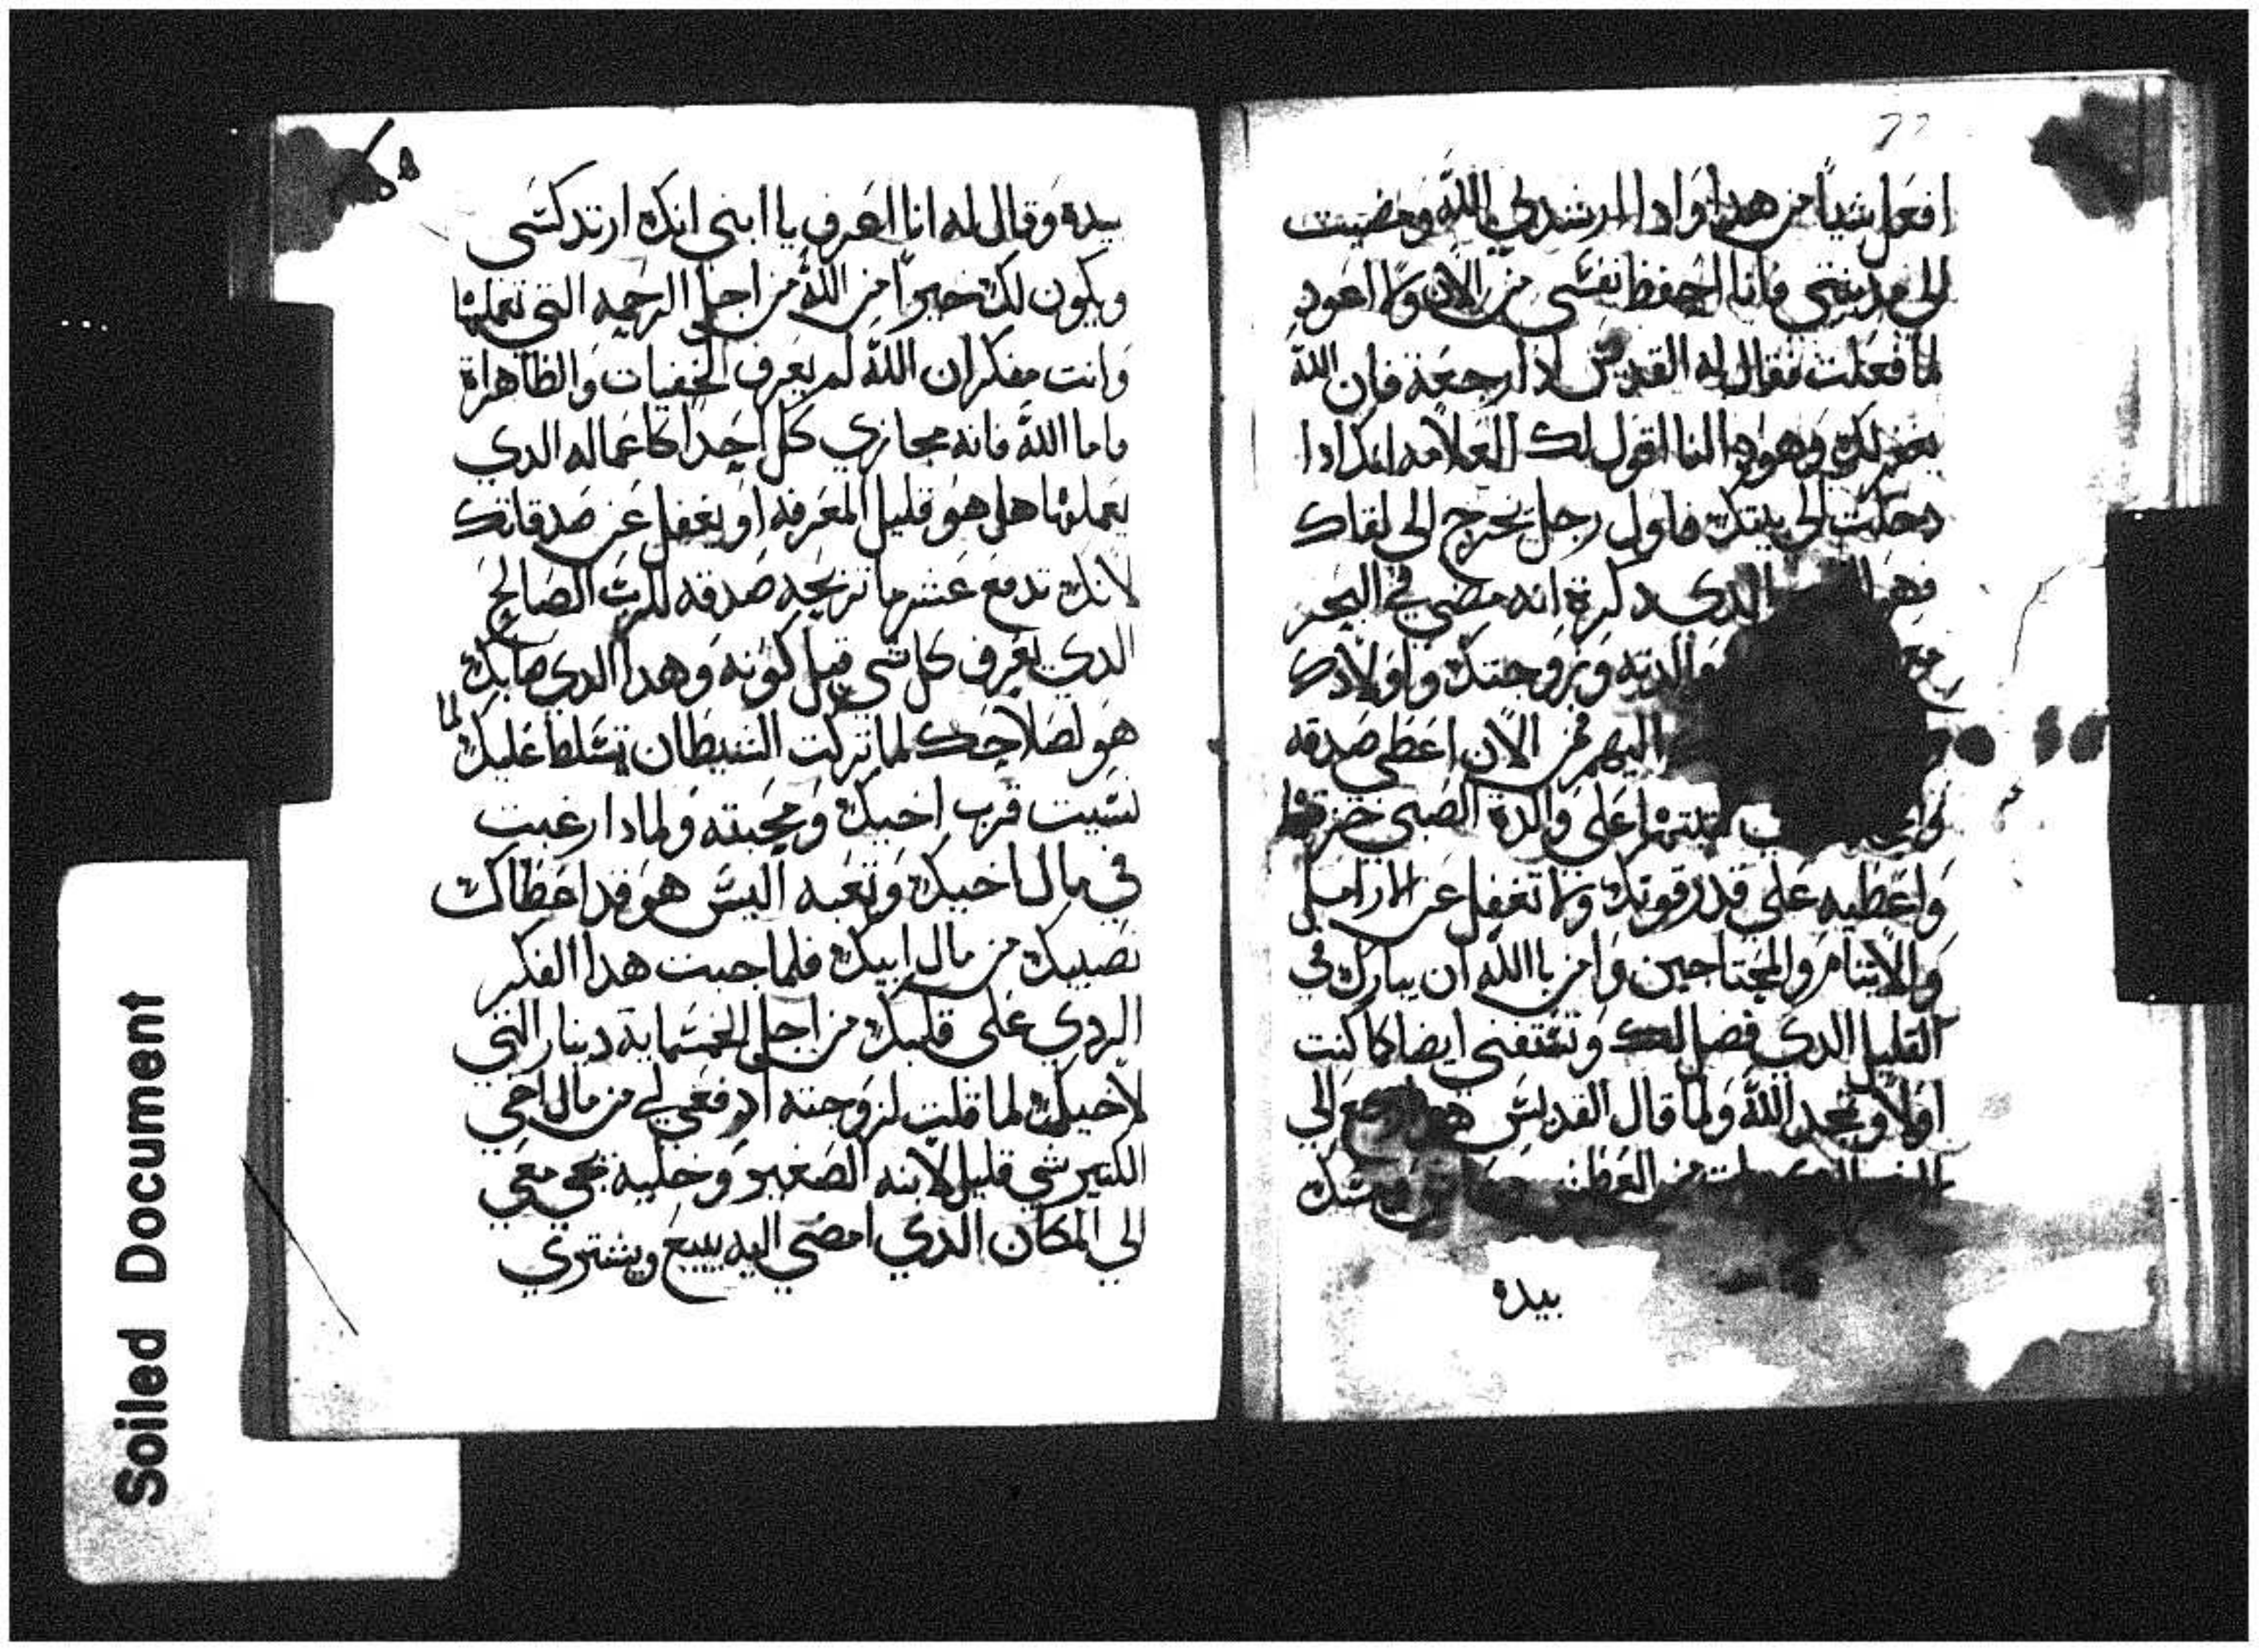 افعل شيا من هدا وادا ارشدني الله ومضيت
الى مدينتي فانا احفظ نفسي من الان ولا اعود
لما فعلت فقال له القديس لا رجعة فان الله
يغفر لك وهودا انا اقول لك العلامه انك ادا
دخلت الى بيتك فاول رجل يخرج الى لقاك
فهو الدي دكرة انه مضي في البحر
والدته وزوجتك واولادك
اليهم فمن الان اعطي صدقه
على والدة الصبي
واعطيه على قدر قوتك ولا تغفل عن الارامل
والايتام والمحتاجين وامن باالله ان يبارك في
القليل الدي فضل لك وتستغني ايضا كما كنت
اولا وتمجد الله ولما قال القديس الي
بيده
بيده وقال له انا اعرف يا ابني انك ارتدكسي
ويكون لك خيرا من الله من اجل الرحمه التي تعملها
وانت مفكر ان الله لم يعرف الخفيات والظاهراة
فاما الله فانه مجازي كل احدا كاعماله الدي
يعملها هل هو قليل المعرفه او يغفل عن صدقاتك
لانك تدفع عشر ما تربحه صدقه للرب الصالح
الدي يعرف كل شي قبل كونه وهدا الدي صابك
هو لصلاحك لما تركت الشيطان تسلط عليك لما
نسيت قرب اخيك ومحبته ولمادا رغبت
في مال اخيك وتعبه اليس هو قد اعطاك
نصيبك من مال ابيك فلما جبت هدا الفكر
الردي على قلبك من اجل الخمسماية دينار التي
لاخيك لما قلت لزوجته ادفعي لي من مال اخي
الكبير شي قليل لابنه الصغير وخليه يجي معي
الي المكان الدي امضي اليه يبيع ويشتري
Soiled Document